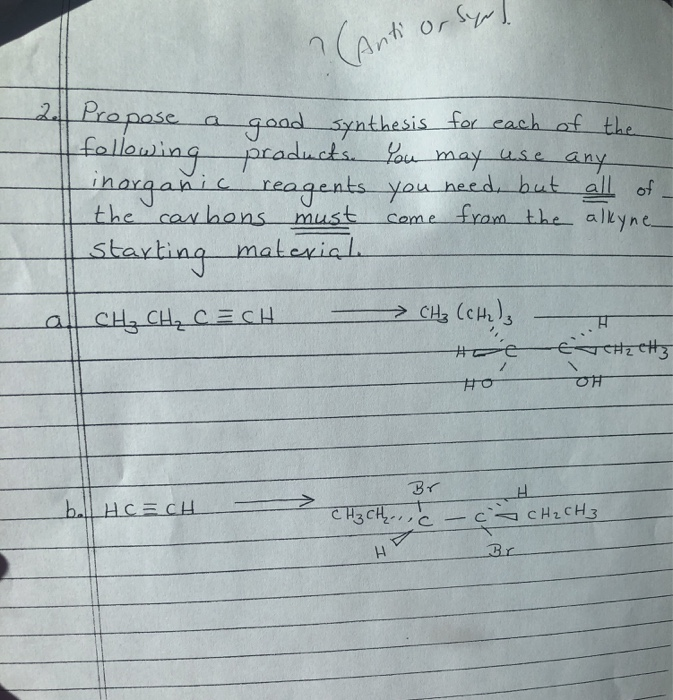 ? (Anti or Syn).
2. Propose a good synthesis for each of the
following products. You may use any
inorganic reagents you need, but all of
the carbons must come from the alkyne
starting material.
a. CH₃ CH₂ C ≡ CH ⟶ CH₃ (CH₂)₃ H
H C C CH₂ CH₃
HO OH
Br H
b. HC ≡ CH ⟶ CH₃CH₂ C – C CH₂CH₃
H Br